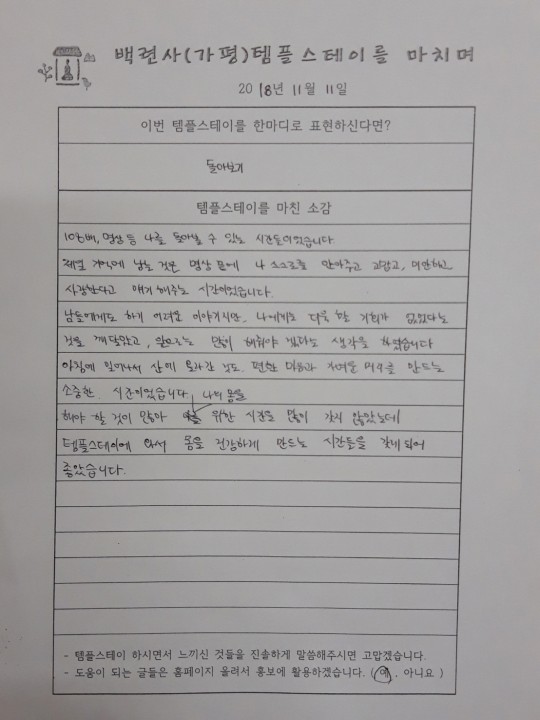 백련사(가평)템플스테이를 마치며
2018년 11월 11일
이번 템플스테이를 한마디로 표현하신다면?
돌아보기
템플스테이를 마친 소감
108배, 명상 등 나를 돌아볼 수 있는 시간들이었습니다.
제일 기억에 남는 것은 명상 끝에 나 스스로를 안아주고 고맙고, 미안하고
사랑한다고 얘기해주는 시간이었습니다.
남들에게도 하기 어려운 이야기지만, 나에게도 다독일 기회가 없었다는
것을 깨달았고, 앞으로는 많이 해줘야 겠다는 생각을 하였습니다
아침에 일어나서 산에 올라간 것도 편한 마음과 가벼운 머리를 만드는
소중한 시간이었습니다. 나의 몸을
해야 할 것이 많아 위한 시간을 많이 갖지 않았는데
템플스테이에 와서 몸을 건강하게 만드는 시간들을 갖게 되어
좋았습니다.
- 템플스테이 하시면서 느끼신 것들을 진솔하게 말씀해주시면 고맙겠습니다.
- 도움이 되는 글들은 홈페이지 올려서 홍보에 활용하겠습니다. ( 예 , 아니요 )